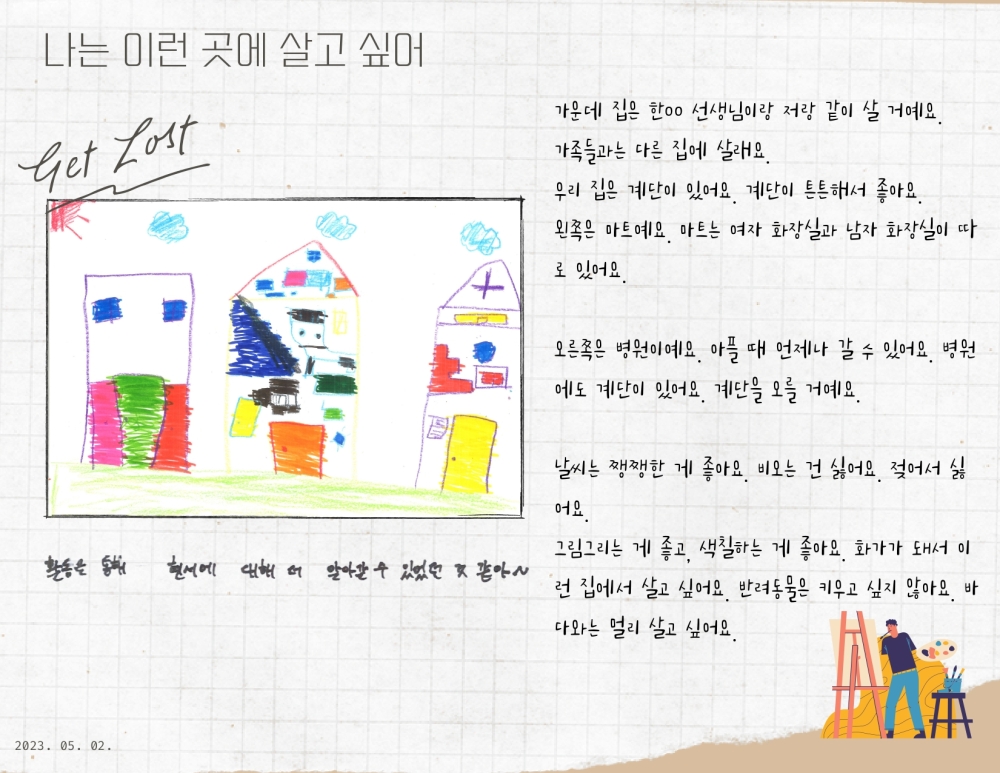 나는 이런 곳에 살고 싶어
Get Lost
가운데 집은 한oo 선생님이랑 저랑 같이 살 거예요.
가족들과는 다른 집에 살래요.
우리 집은 계단이 있어요. 계단이 튼튼해서 좋아요.
왼쪽은 마트예요. 마트는 여자 화장실과 남자 화장실이 따
로 있어요.
오른쪽은 병원이예요. 아플 때 언제나 갈 수 있어요. 병원
에도 계단이 있어요. 계단을 오를 거예요.
날씨는 쨍쨍한 게 좋아요. 비오는 건 싫어요. 젖어서 싫
어요.
그림그리는 게 좋고, 색칠하는 게 좋아요. 화가가 돼서 이
런 집에서 살고 싶어요. 반려동물은 키우고 싶지 않아요. 바
다와는 멀리 살고 싶어요.
활동을 통해 현서에 대해 더 알아갈 수 있었던 것 같아~
2023. 05. 02.